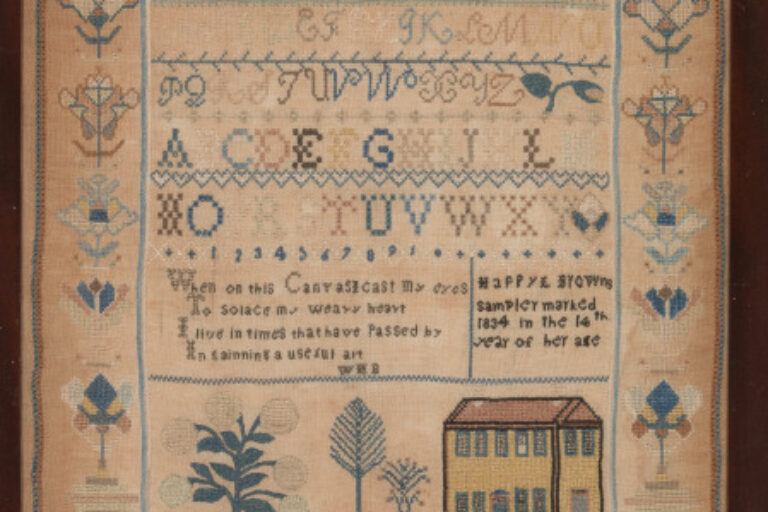 EF JKLM NO
PQRSTUVWXYZ
A CDEFGHIJ L
NO R TUVWXY
1 2 3 4 5 6 7 8 9 1
When on this Canvas I cast my eyes
To solace my weary heart
I live in times that have Passed by
In gainning a useful art
WHB
Happy K Browns
sampler marked
1834 in the 16th
year of her age